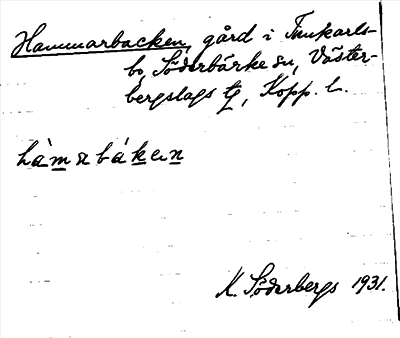 Hammarbacken, gård i Tunkarls-
bo, Söderbärke sn, Väster-
bergslags tg, Kopp. l.
hàmabáken
K. Söderbergs 1931.